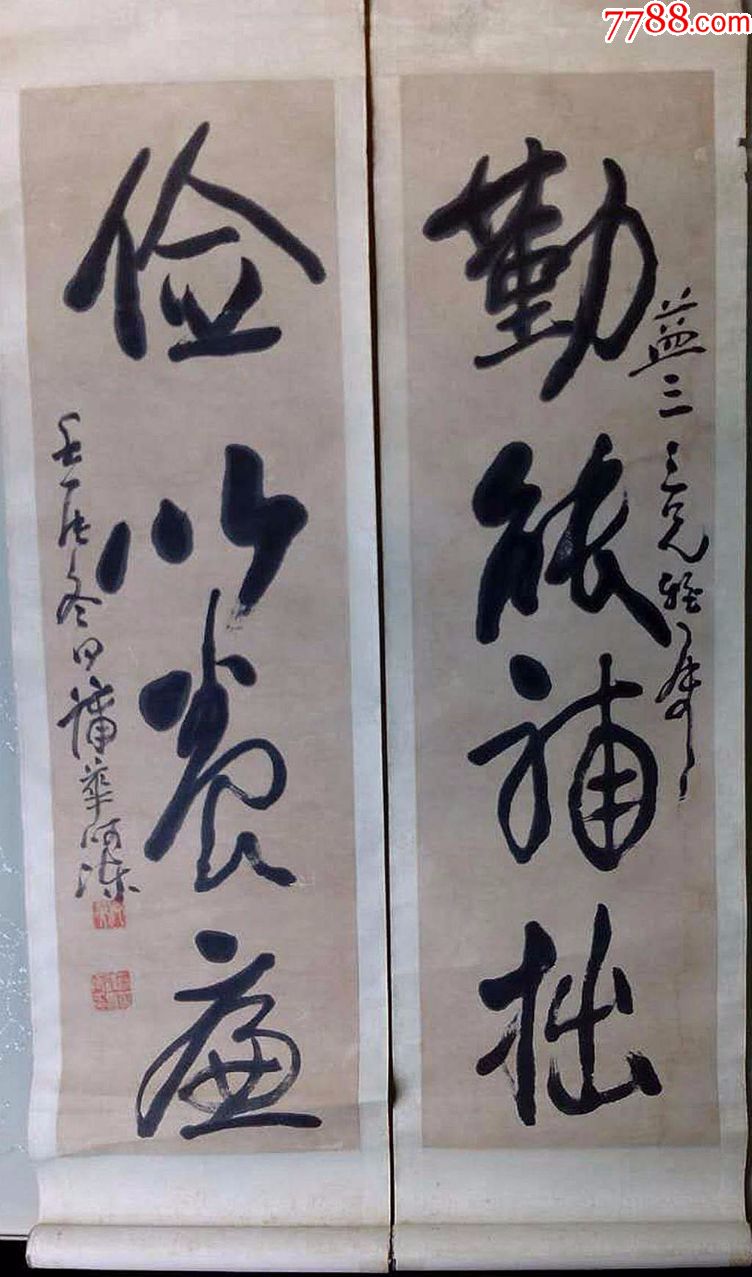 7788.com
勤能補拙
益三三兄雅屬
儉以養廉
壬辰冬日蒲華呵凍